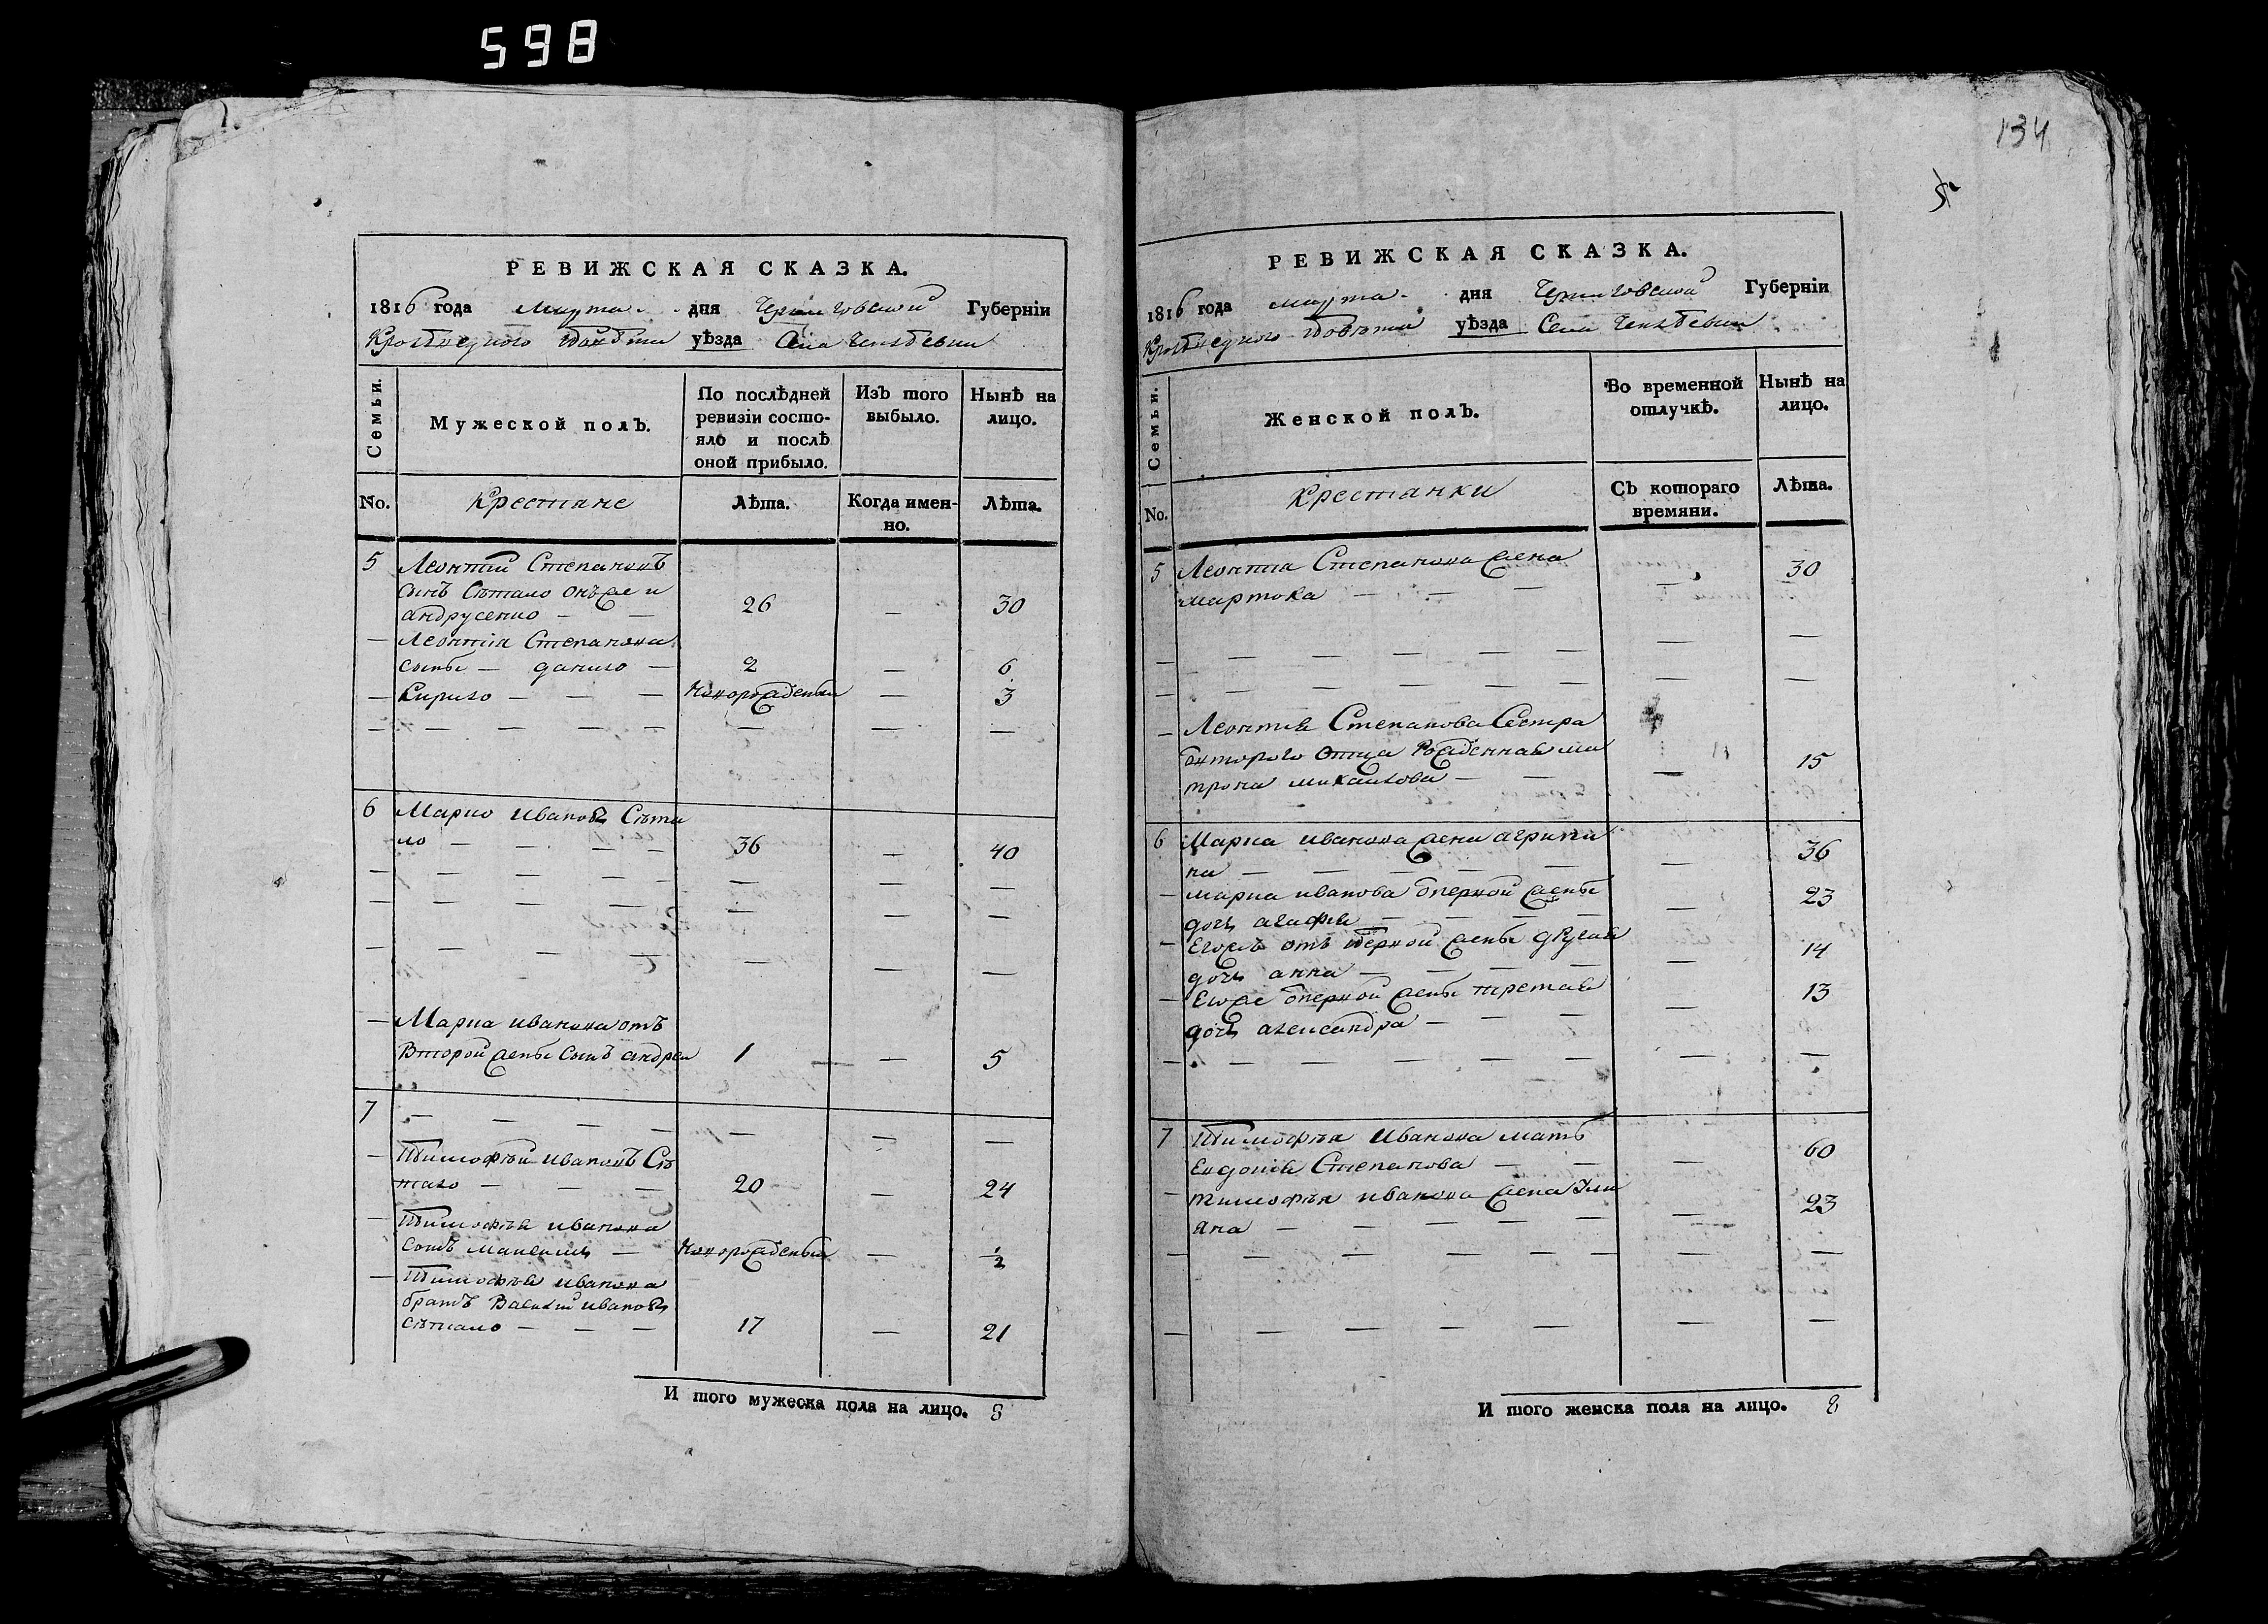 598
134
РЕВИЖСКАЯ СКАЗКА.
1816 года Марта дня Черниговской Губерніи
уѣзда Села
Семьи.
Мужеской полъ.
По послѣдней ревизіи состояло и послѣ оной прибыло.
Изъ того выбыло.
Нынѣ на лицо.
No.
Крестяне
Лѣта.
Когда именно.
Лѣта.
5 Леонтий Степановъ
сынъ Сѣтало онъже и
андрусенко — — 26 — 30
— Леонтія Степанова
сыны — данило — 2 — 6
— Кирило — — — Новорожденый — 3
— — — — — — — —
6 Марко Иванов Сѣта
ло — — — — 36 — 40
— — — — — — — —
— — — — — — — —
— — — — — — — —
— Марка иванова отъ
Второй жены сынъ андреи 1 — 5
7 — — — — — — —
— Тимофѣй ивановъ Сѣ
тало — — — 20 — 24
— Тимофѣя иванова
сынъ — Новорожденый — ½
— Тимофѣя иванова
братъ Василий иванов
сѣтало — — — 17 — 21
И того мужеска пола на лицо. 8
РЕВИЖСКАЯ СКАЗКА.
1816 года марта дня Черниговской Губерніи
повѣта уѣзда Села
Семьи.
Женской полъ.
Во временной отлучкѣ.
Нынѣ на лицо.
No.
Крестянки
Съ котораго времяни.
Лѣта.
5 Леонтия Степанова жена
— — — — 30
— — — — — — — —
— — — — — — — —
— Леонтия Степанова Сестра
второго отца рожденная ма
трона михаилова — — — 15
6 Марка иванова жена агрипи
на — — — — — 36
— марка иванова оперной жены
дочь агафия — — — — 23
— Егожъ отъ перной жены другая
дочь анна — — — — — 14
— Егоже оперной жены третая
дочь александра — — — — 13
— — — — — — — —
7 Тимофѣя Иванова мать
Евдокия Степанова — — — 60
— тимофѣя иванова жена Ули
яна — — — — — — 23
— — — — — — — —
— — — — — — — —
И того женска пола на лицо. 8